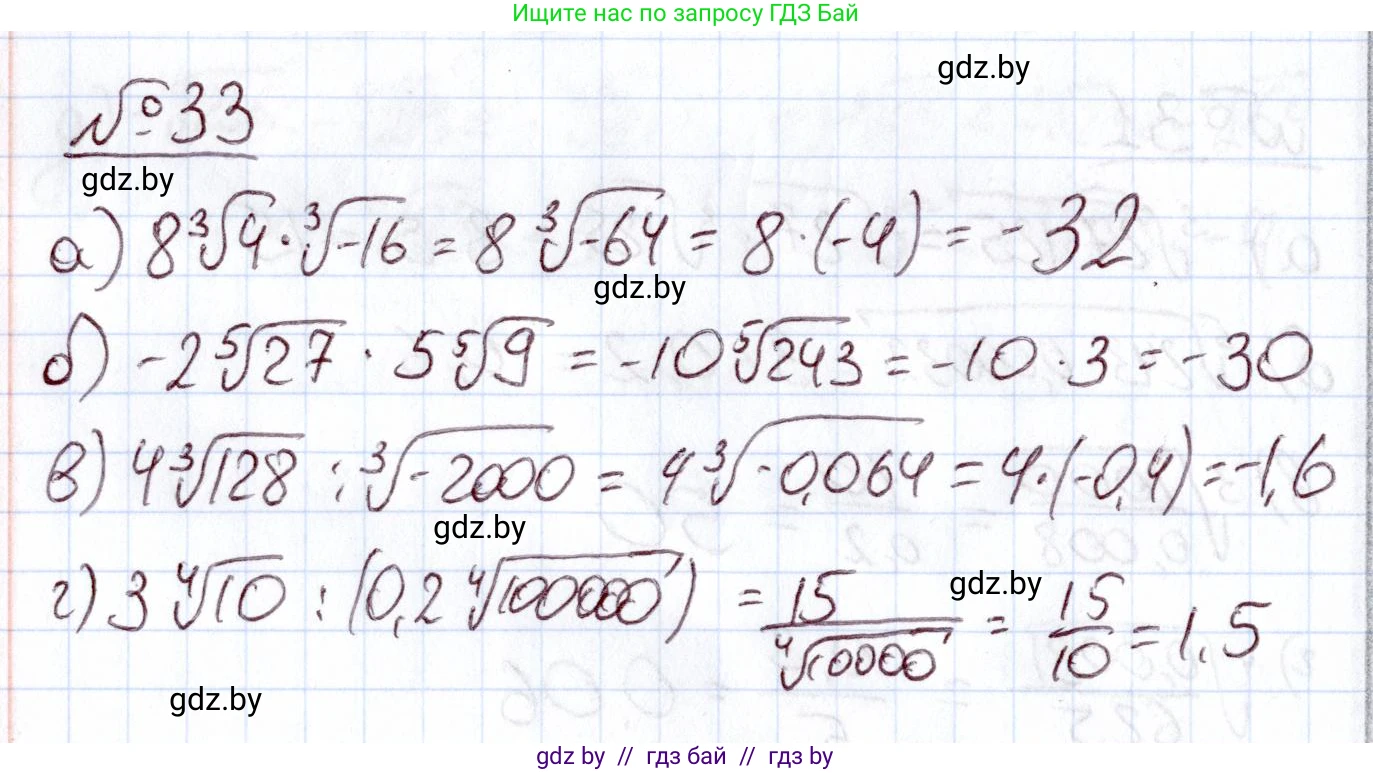 Ищите нас по запросу ГДЗ Бай
gdz.by
№33
gdz.by
а) 8∛4 · ∛-16 = 8 ∛-64 = 8 · (-4) = -32
gdz.by
б) -2 ⁵√27 · 5 ⁵√9 = -10 ⁵√243 = -10 · 3 = -30
в) 4∛128 : ∛-2000 = 4∛-0,064 = 4·(-0,4) = -1,6
gdz.by
г) 3 ∜10 : (0,2 ∜100000) = 15/∜10000 = 15/10 = 1,5
gdz.by
gdz.by
gdz by // гдз бай // гдз by